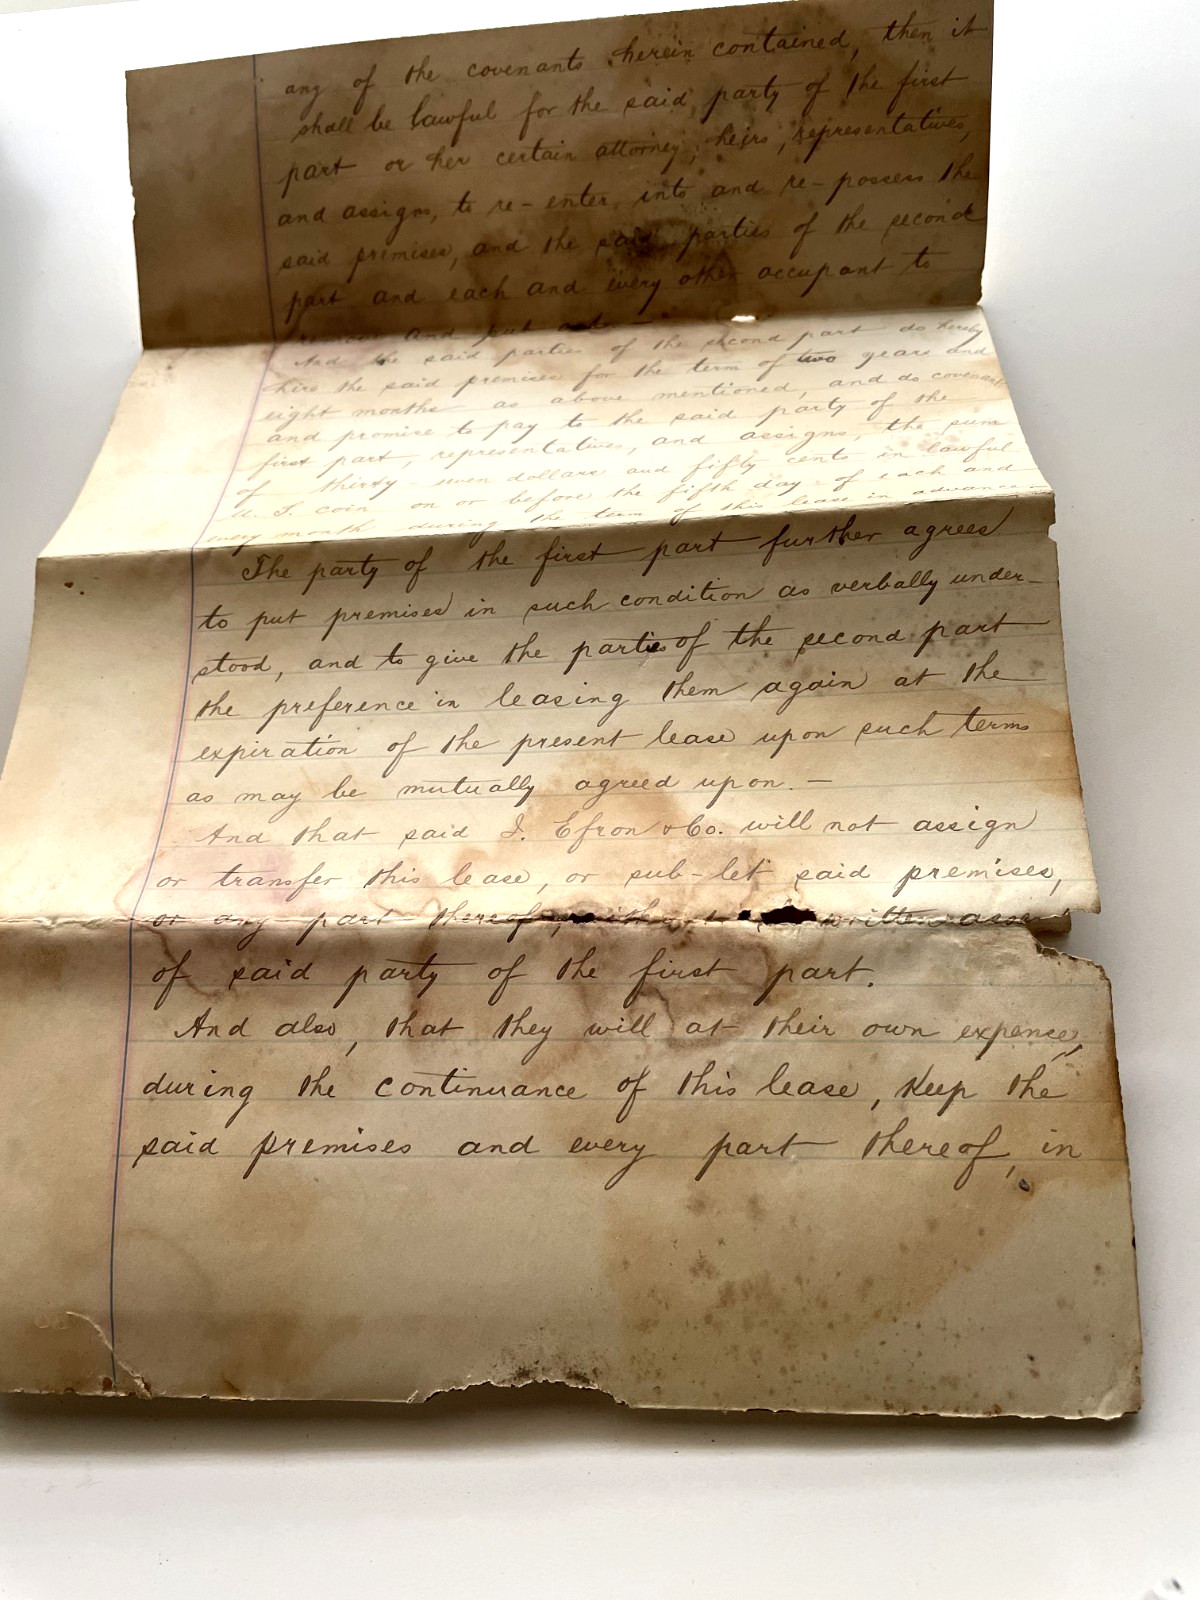 any of the covenants herein contained, then it
shall be lawful for the said party of the first
part or her certain attorney, heirs, representatives,
and assigns, to re-enter into and re-possess the
said premises, and the said parties of the second
part and each and every other occupant to
remove and put out. —
And the said parties of the second part do hereby
hire the said premises for the term of two years and
eight months as above mentioned, and do covenant
and promise to pay to the said party of the
first part, representatives, and assigns, the sum
of thirty-seven dollars and fifty cents in lawful
U. S. coin on or before the fifth day of each and
every month during the term of this lease in advance —
The party of the first part further agrees
to put premises in such condition as verbally under-
stood, and to give the parties of the second part
the preference in leasing them again at the
expiration of the present lease upon such terms
as may be mutually agreed upon. —
And that said I. Efron & Co. will not assign
or transfer this lease, or sub-let said premises,
or any part thereof, without written assent
of said party of the first part.
And also, that they will at their own expense,
during the continuance of this lease, keep the
said premises and every part thereof, in